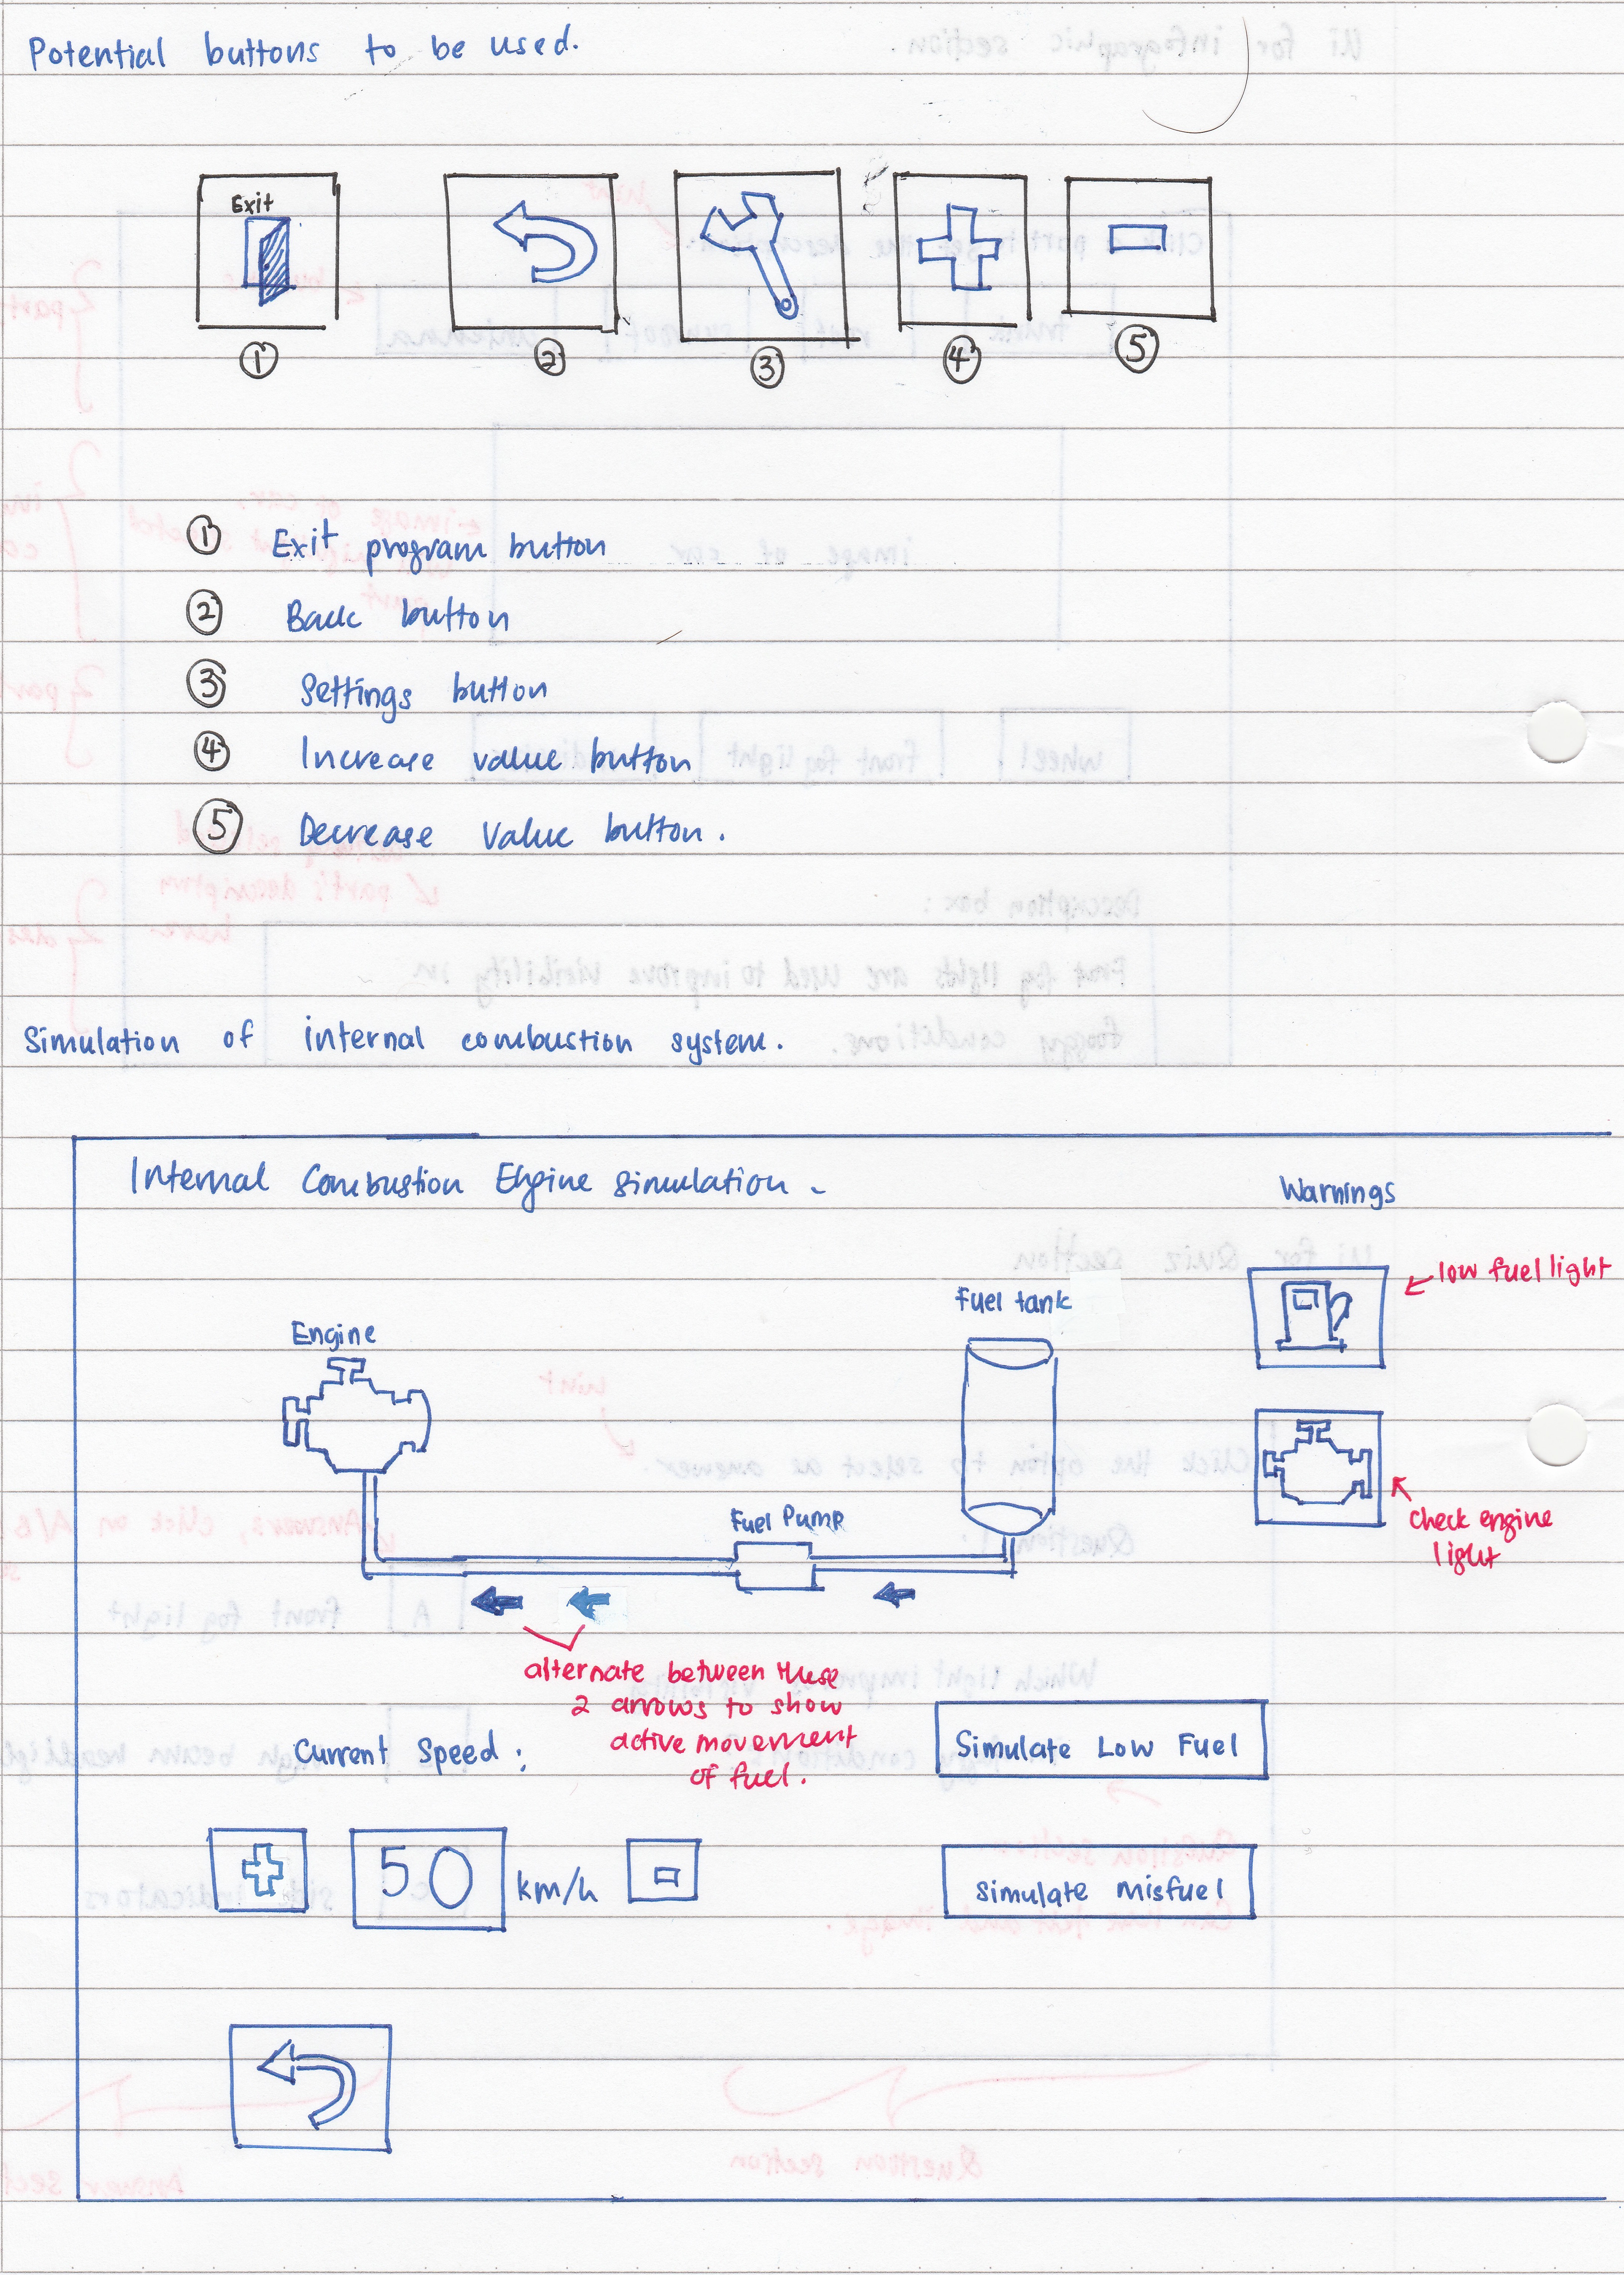 Potential buttons to be used.
Exit
1 2 3 4 5
1 Exit program button
2 Back button
3 Settings button
4 Increase value button
5 Decrease value button.
Simulation of internal combustion system.
Internal Combustion Engine simulation.
Warnings
low fuel light
Fuel tank
Engine
Fuel Pump
check engine
light
alternate between these
2 arrows to show
active movement
of fuel.
Current Speed:
Simulate Low Fuel
50 km/h
Simulate Misfuel